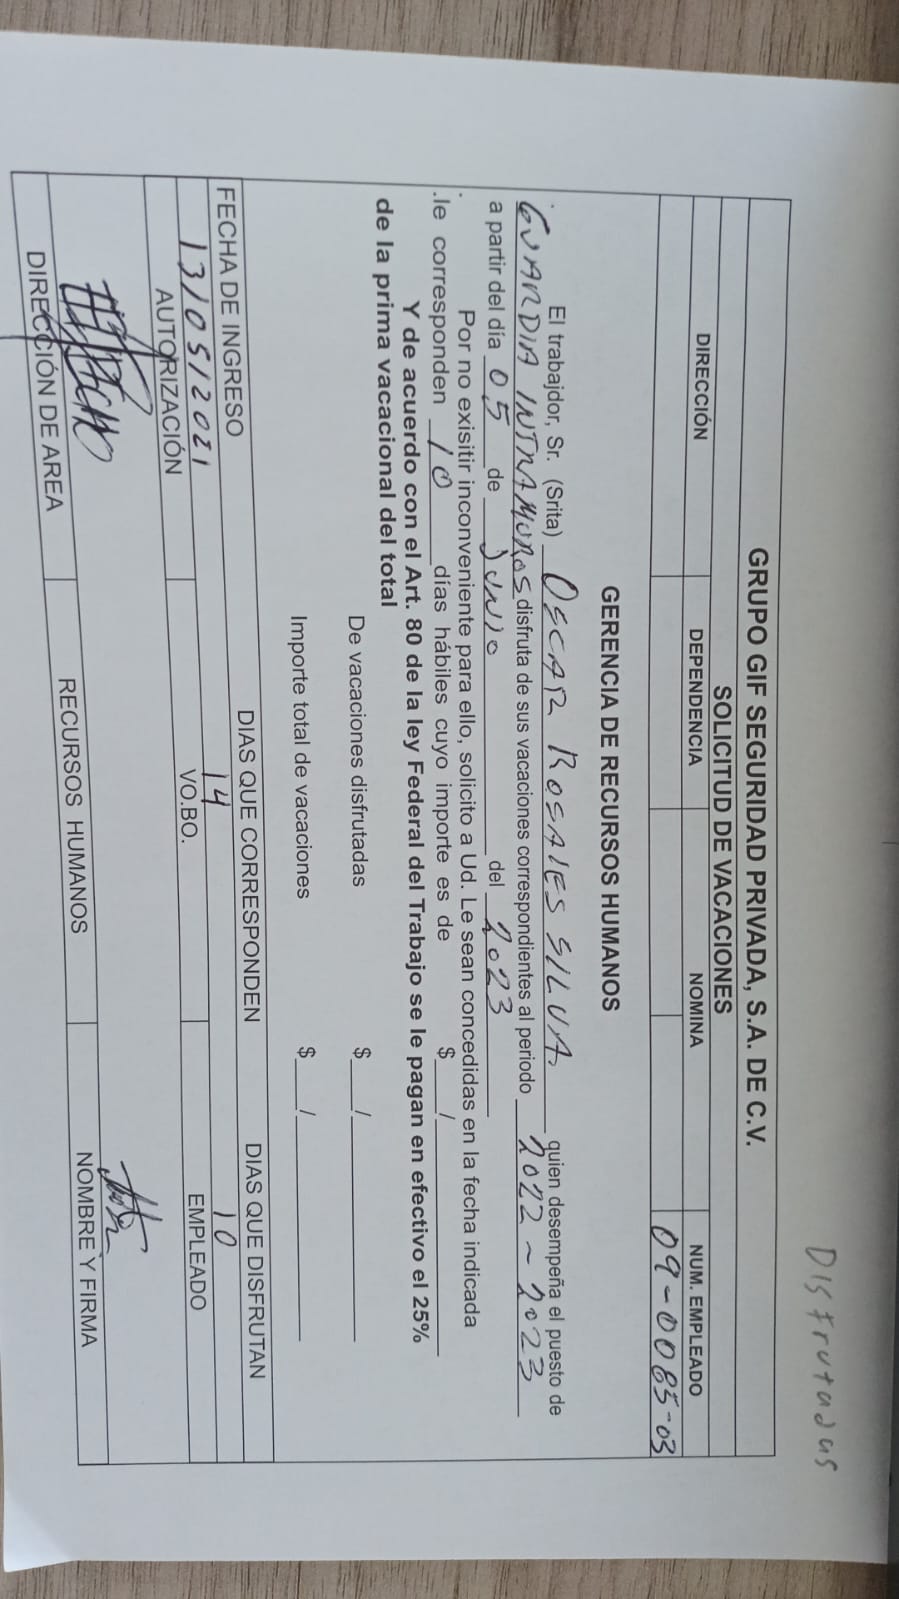 Disfrutadas
GRUPO GIF SEGURIDAD PRIVADA, S.A. DE C.V.
SOLICITUD DE VACACIONES
DIRECCIÓN DEPENDENCIA NOMINA NUM. EMPLEADO
09-0085-03
GERENCIA DE RECURSOS HUMANOS
El trabajdor, Sr. (Srita) OSCAR ROSALES SILVA quien desempeña el puesto de
GUARDIA INTRAMUROS disfruta de sus vacaciones correspondientes al periodo 2022 - 2023
a partir del día 05 de JUNIO del 2023
Por no exisitir inconveniente para ello, solicito a Ud. Le sean concedidas en la fecha indicada
.le corresponden 10 días hábiles cuyo importe es de $____/____
Y de acuerdo con el Art. 80 de la ley Federal del Trabajo se le pagan en efectivo el 25%
de la prima vacacional del total
De vacaciones disfrutadas $____/____
Importe total de vacaciones $____/____
FECHA DE INGRESO DIAS QUE CORRESPONDEN DIAS QUE DISFRUTAN
13/05/2021 14 10
AUTORIZACIÓN VO.BO. EMPLEADO
DIRECCIÓN DE AREA RECURSOS HUMANOS NOMBRE Y FIRMA